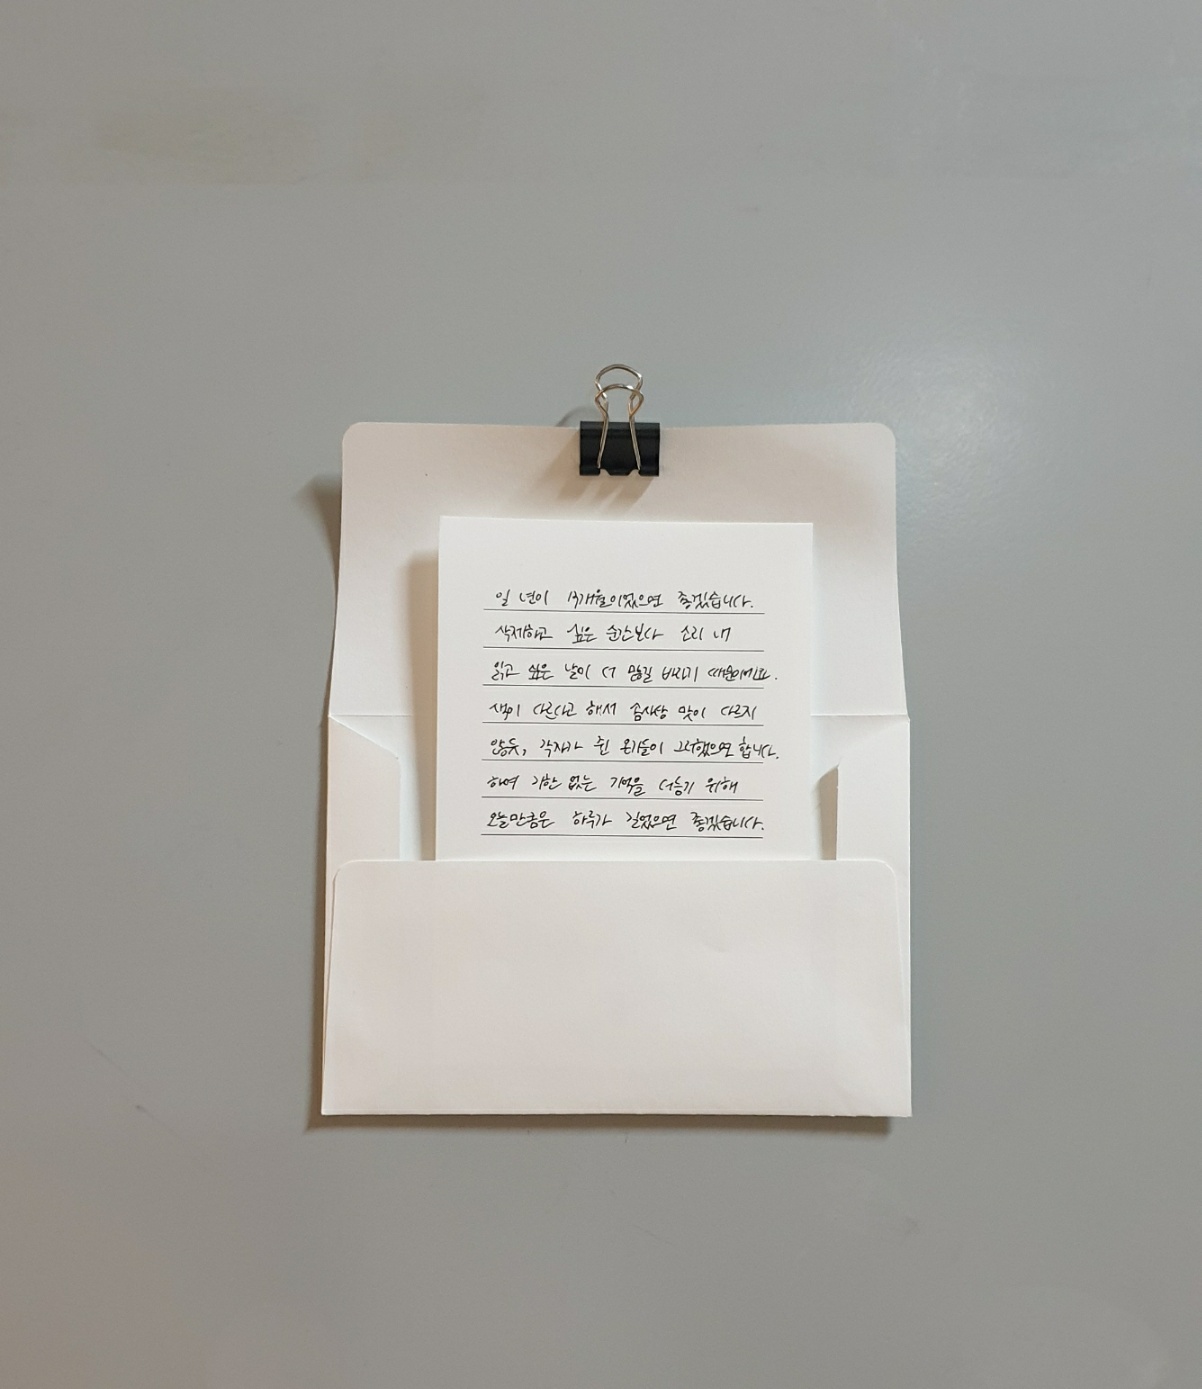 일 년이 13개월이었으면 좋겠습니다.
삭제하고 싶은 순간보다 소리 내
읽고 싶은 날이 더 많길 바라기 때문이에요.
색이 다르다고 해서 솜사탕 맛이 다르지
않듯, 각자가 쥔 온기들이 그러했으면 합니다.
하여 기한 없는 기억을 더듬기 위해
오늘만큼은 하루가 길었으면 좋겠습니다.